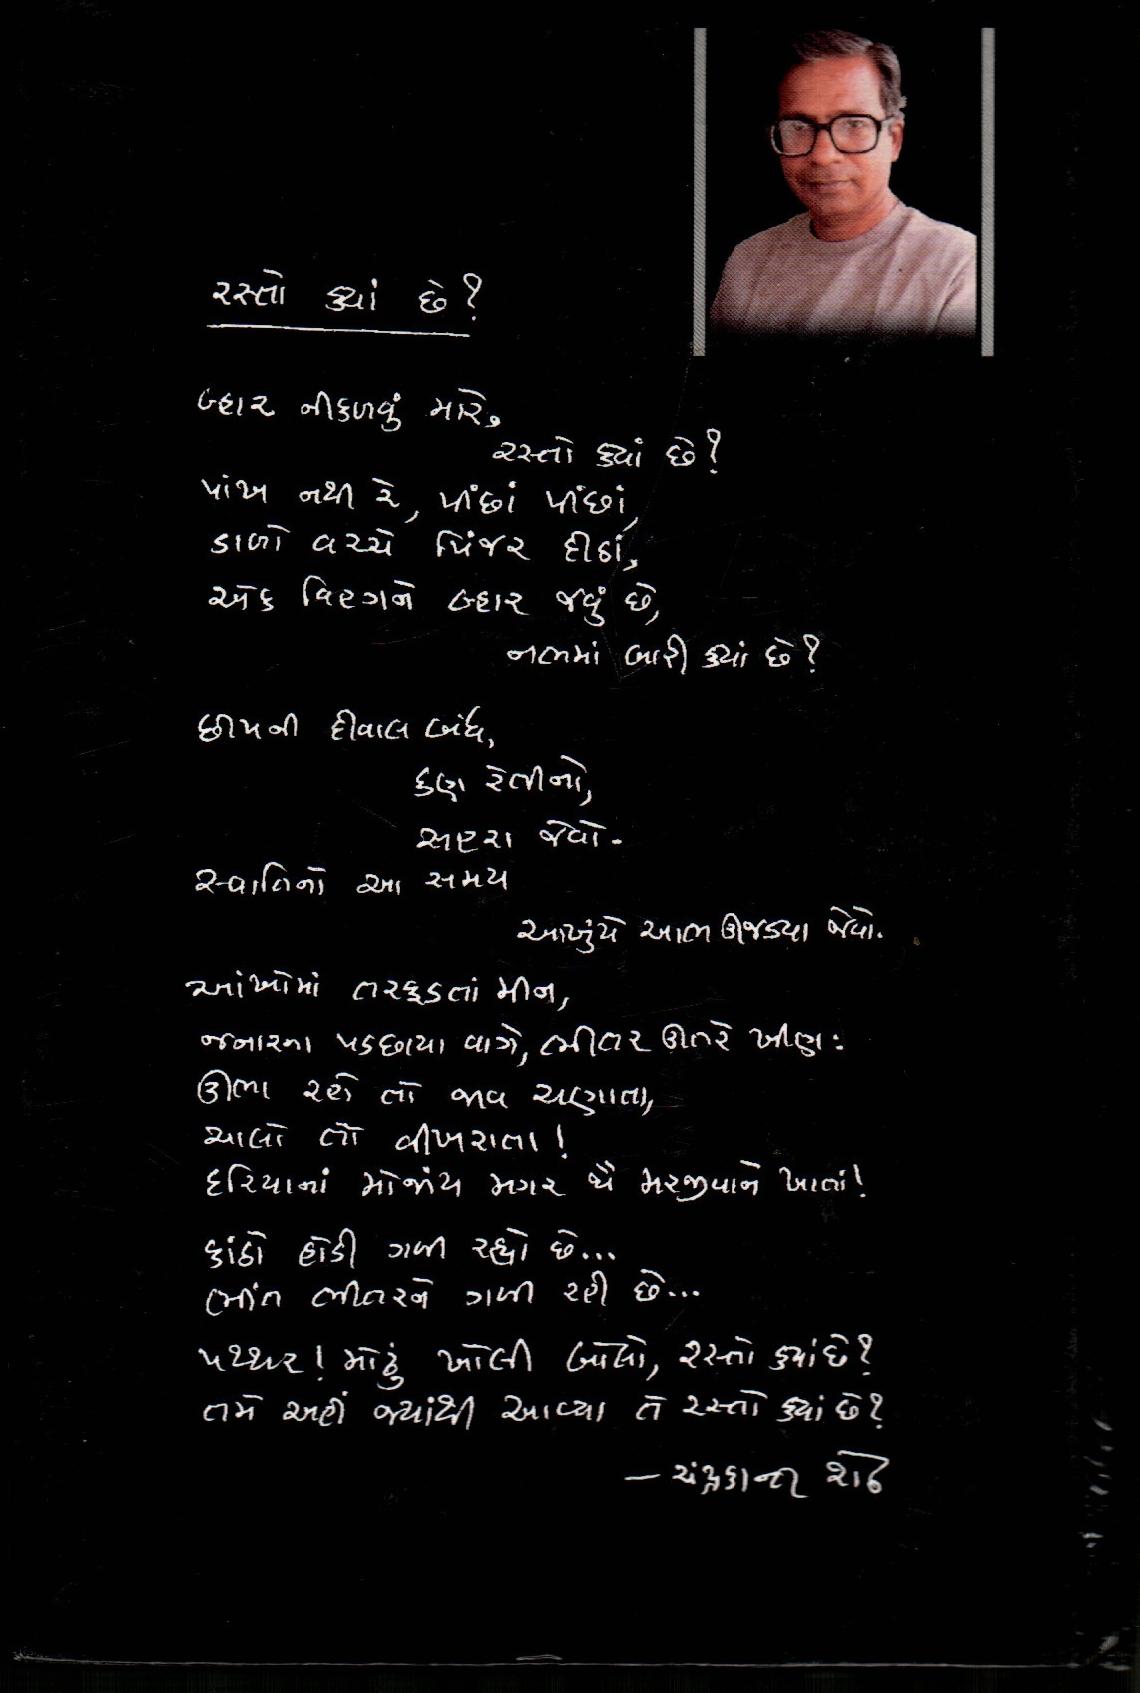 રસ્તો ક્યાં છે?
બ્હાર નીકળવું મારે,
રસ્તો ક્યાં છે?
પાંખ નથી રે, પીંછાં પીંછાં,
ડાળો વચ્ચે પિંજર દીઠાં,
એક વિહગને બ્હાર જવું છે,
નભમાં બારી ક્યાં છે?
છીપની દીવાલ બંધ,
કણ રેતીનો,
સહરા જેવો.
સ્વાતિનો આ સમય
આખુંયે આભ ઊજડ્યા જેવો.
આંખોમાં તરફડતાં મીન,
જનારના પડછાયા વાગે, ભીતર ઊતરે ખીણ:
ઊભા રહો તો જાવ ચણાતા,
ચાલો તો વીખરાતા!
દરિયાનાં મોજાંય મગર થૈ મરજીવાને ખાતાં!
કાંઠો હોડી ગળી રહ્યો છે...
ભીંત ભીતરને ગળી રહી છે...
પથ્થર! મોઢું ખોલી બોલો, રસ્તો ક્યાં છે?
તમે અહીં જ્યાંથી આવ્યા તે રસ્તો ક્યાં છે?
– ચંદ્રકાન્ત શેઠ